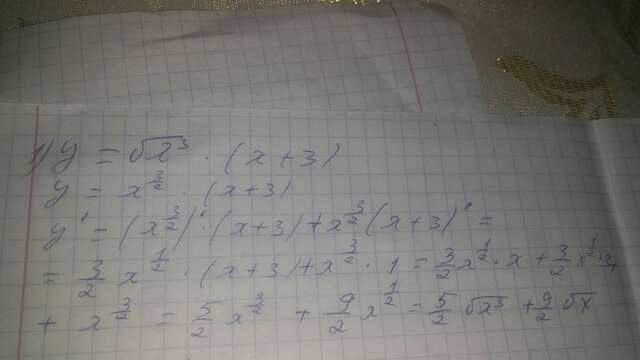 1) y = √x³ · (x+3)
y = x^(3/2) · (x+3)
y' = (x^(3/2))' · (x+3) + x^(3/2) (x+3)' =
= 3/2 x^(1/2) · (x+3) + x^(3/2) · 1 = 3/2 x^(1/2) · x + 3/2 x^(1/2) · 3 +
+ x^(3/2) = 5/2 x^(3/2) + 9/2 x^(1/2) = 5/2 √x³ + 9/2 √x